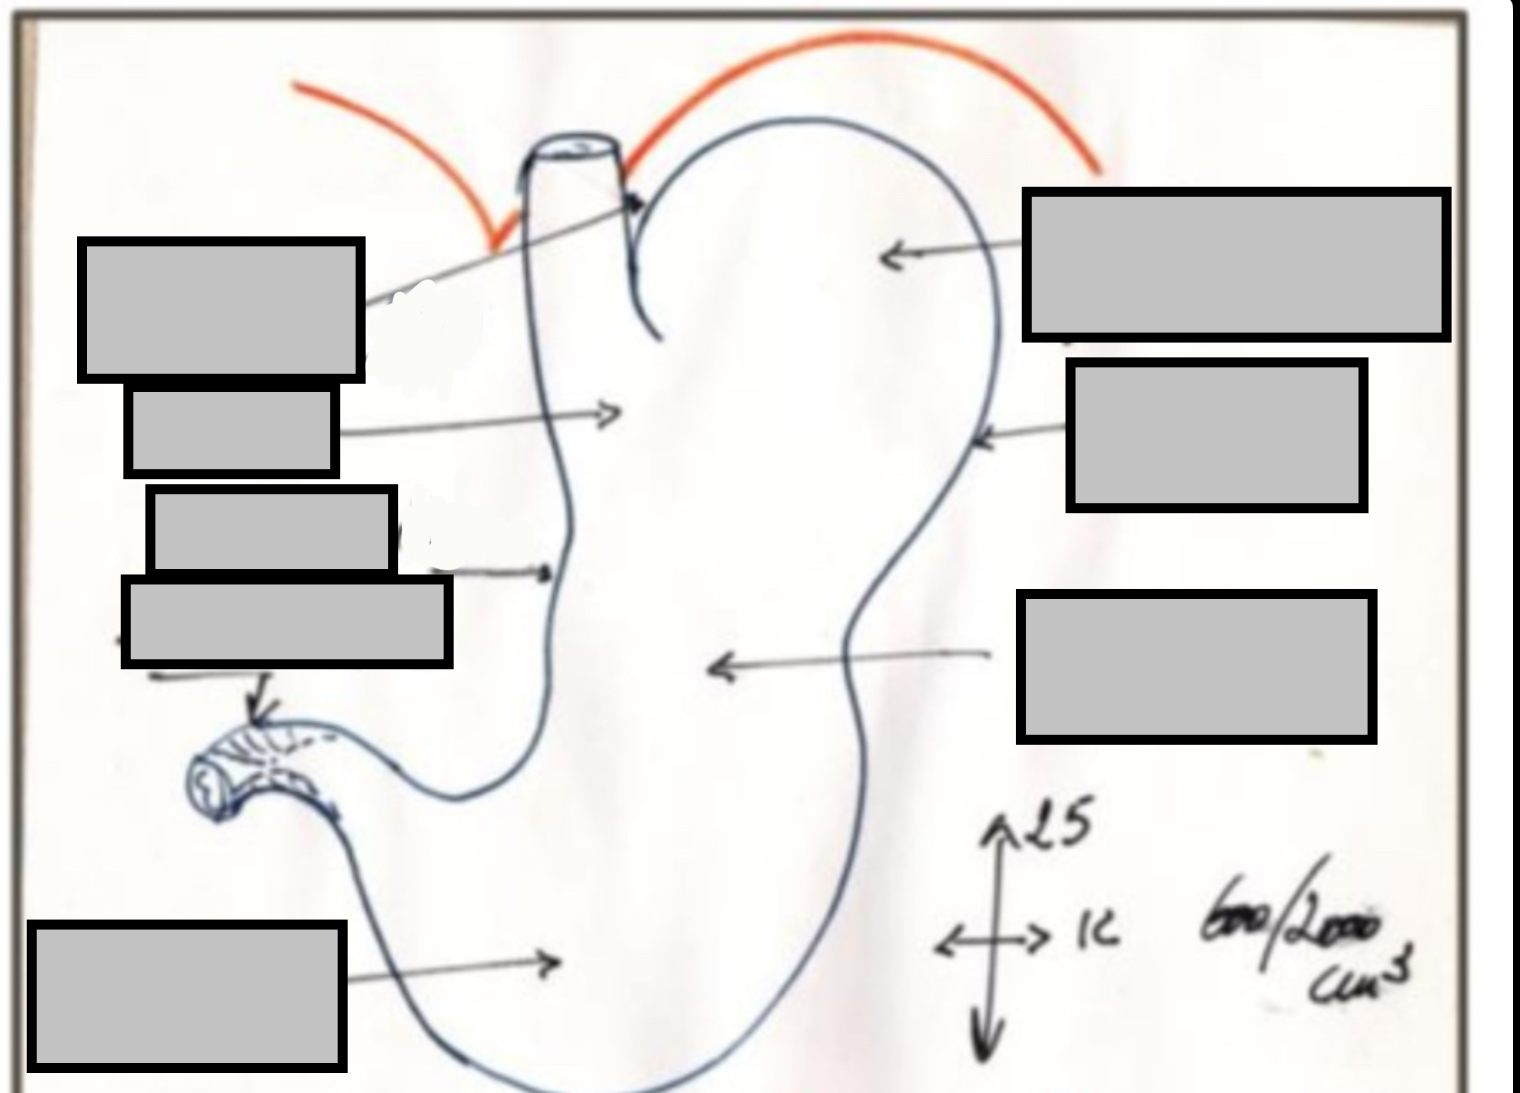 25
12
600/2000
cm³